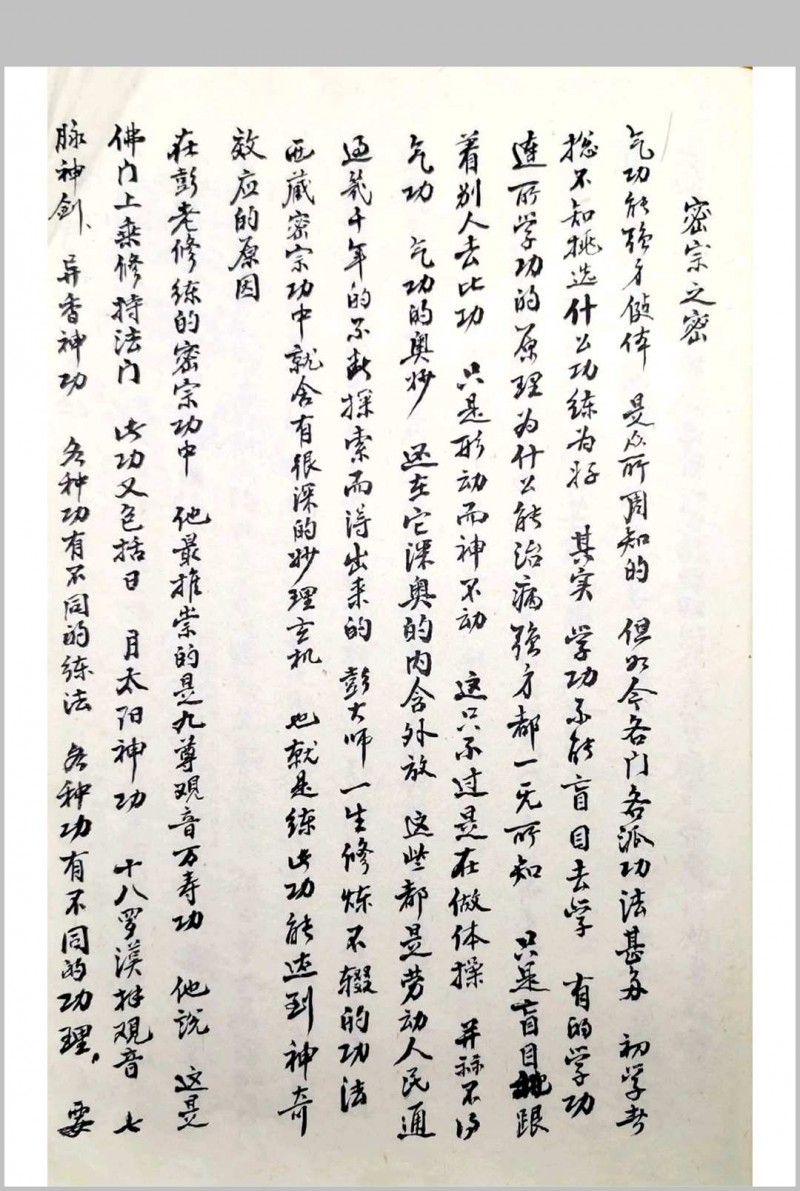 密宗之密
气功能强身健体 是众所周知的 但如今各门各派功法甚多 初学者
总不知挑选什么功练为好 其实 学功不能盲目去学 有的学功
连所学功的原理为什么能治病强身都一无所知 只是盲目地跟
着别人去比功 只是形动而神不动 这只不过是在做体操 并称不得
气功 气功的奥妙 还在它深奥的内含外放 这些都是劳动人民通
过几千年的不断探索而得出来的 彭大师一生修炼不辍的功法
西藏密宗功中就含有很深的妙理玄机 也就是练此功能达到神奇
效应的原因
在彭老修练的密宗功中 他最推崇的是九尊观音万寿功 他说 这是
佛门上乘修持法门 此功又包括日 月太阳神功 十八罗汉拜观音 七
脉神剑、异香神功 各种功有不同的练法 各种功有不同的功理, 要